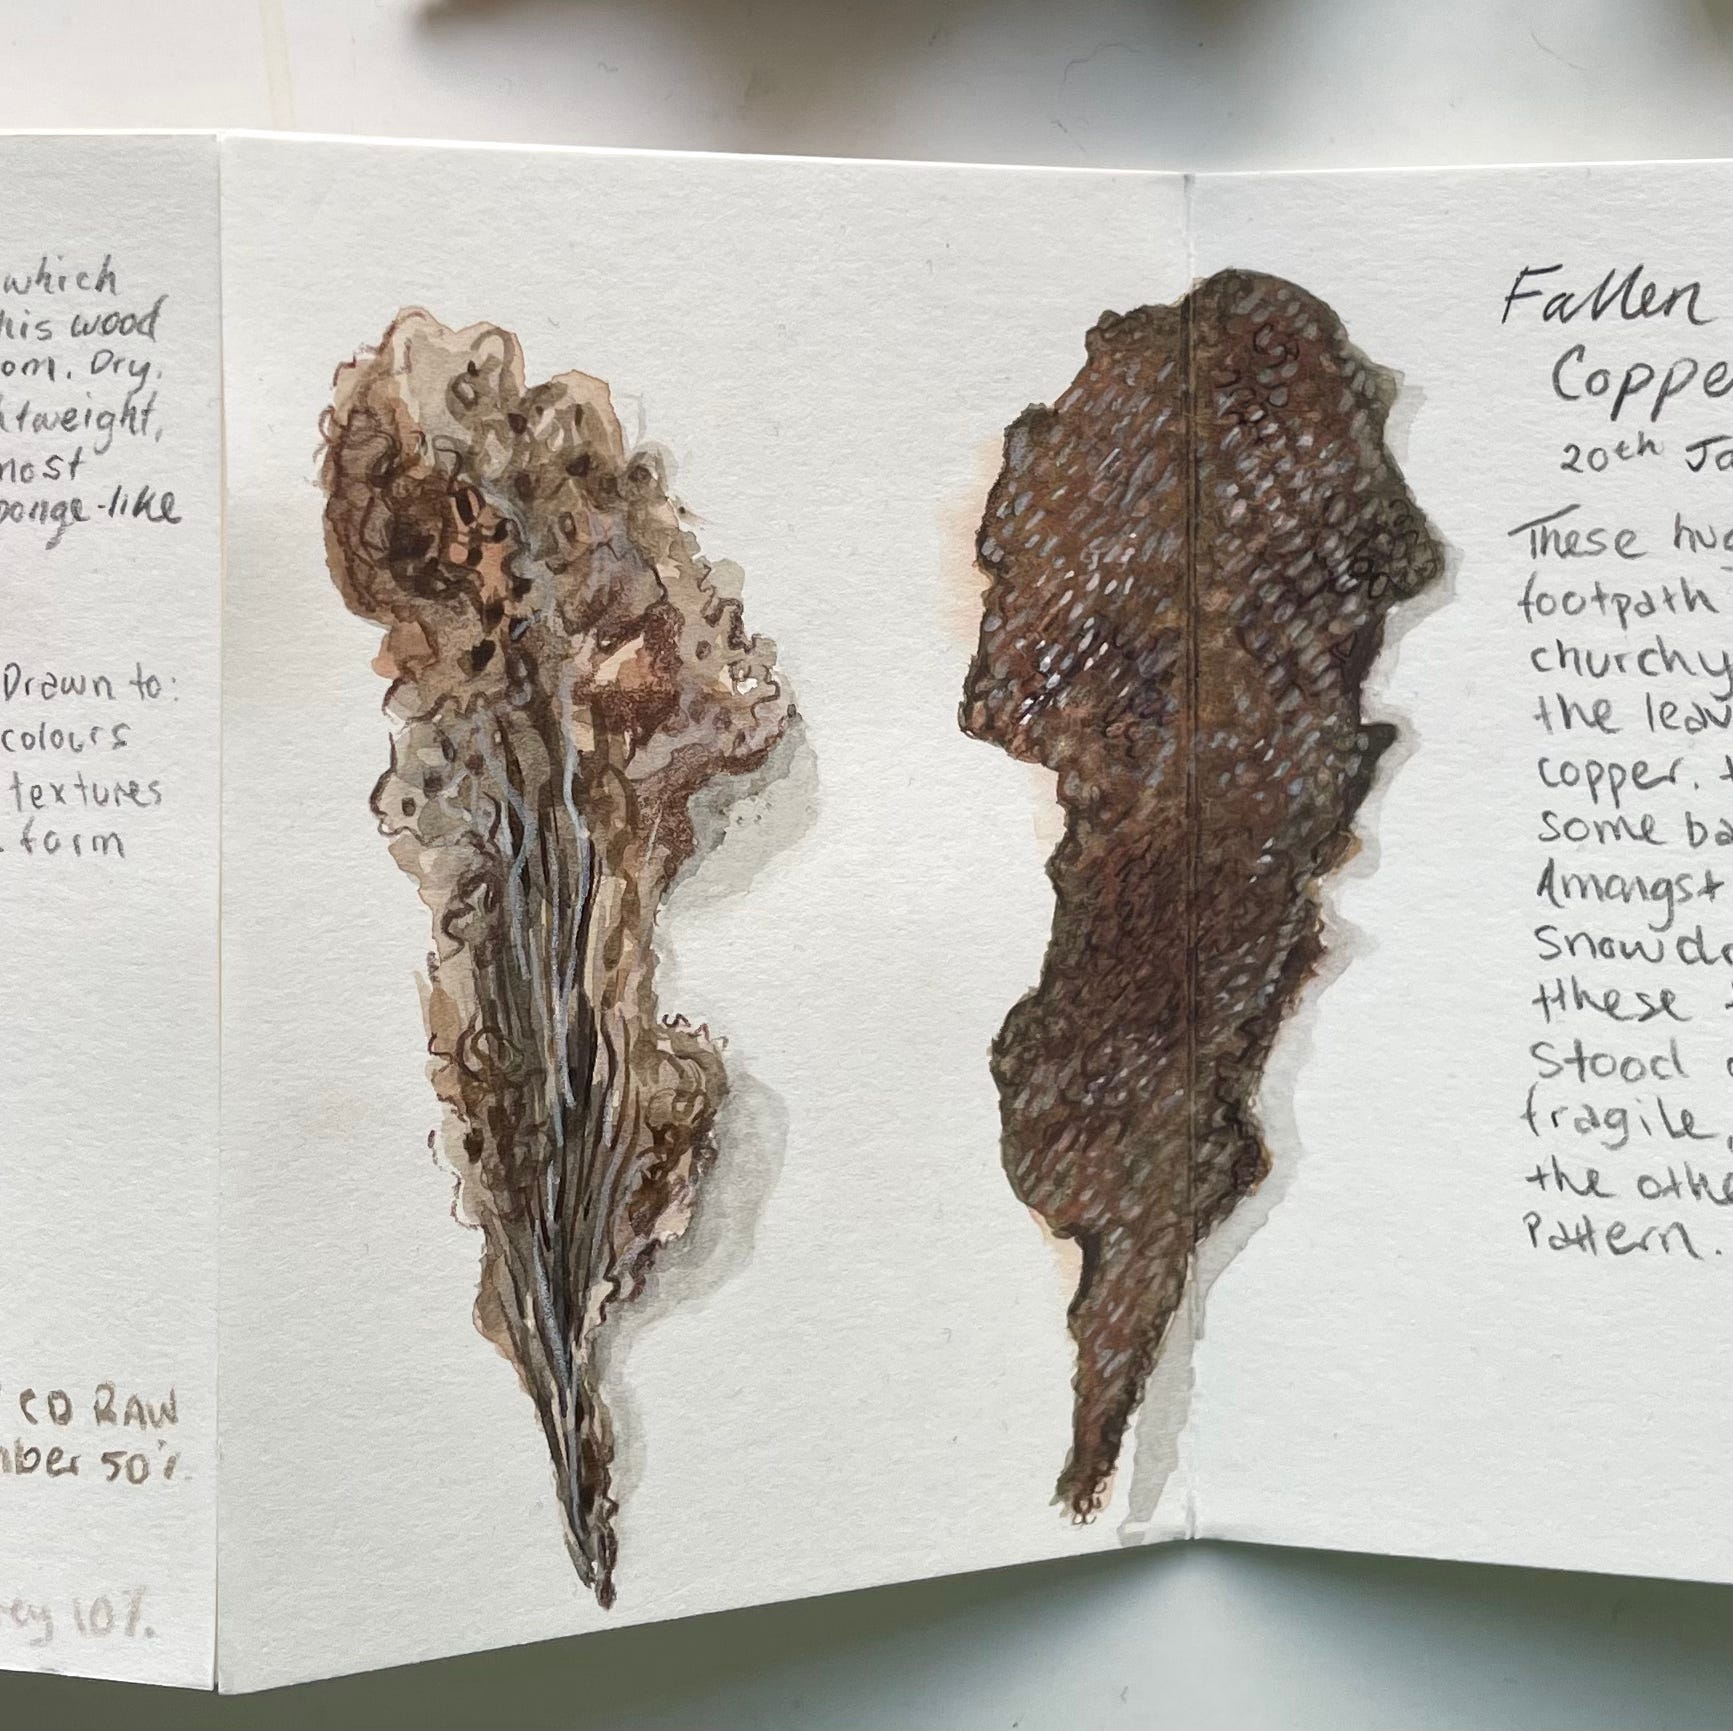 which
his wood
om. Dry,
htweight,
most
ponge-like
Drawn to:
colours
textures
form
CD RAW
mber 50%.
rey 10%.
Fallen
Coppe
20th Ja
These hug
footpath
churchy
the leav
copper. t
some ba
Amongst
Snowdr
these
stood
fragile,
the othe
Pattern.